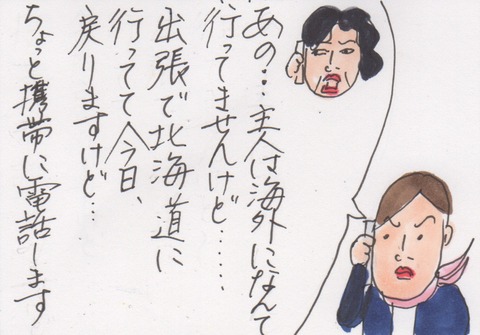 あの…主人は海外になんて
行ってませんけど……
出張で北海道に
行ってて今日、
戻りますけど…
ちょっと携帯に電話します